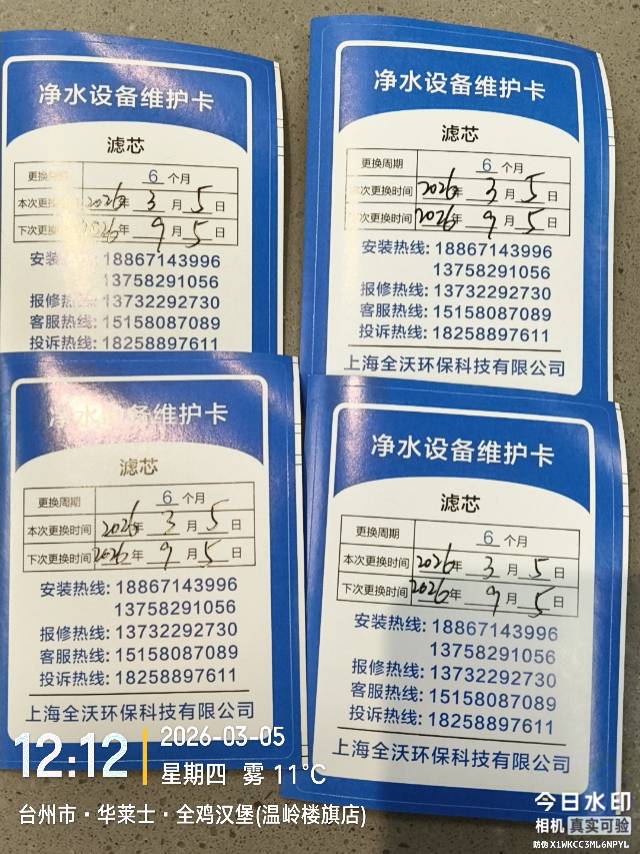 净水设备维护卡
滤芯
更换 6 个月
本次更换 2026年 3 月 5 日
下次更换 2026年 9 月 5 日
安装热线: 18867143996
13758291056
报修热线: 13732292730
客服热线: 15158087089
投诉热线: 18258897611
净水设备维护卡
滤芯
更换周期 6 个月
本次更换时间 2026年 3 月 5 日
下次更换时间 2026年 9 月 5 日
安装热线: 18867143996
13758291056
报修热线: 13732292730
客服热线: 15158087089
投诉热线: 18258897611
上海全沃环保科技有限公司
净水设备维护卡
滤芯
更换周期 6 个月
本次更换时间 2026年 3 月 5 日
下次更换时间 2026年 9 月 5 日
安装热线: 18867143996
13758291056
报修热线: 13732292730
客服热线: 15158087089
投诉热线: 18258897611
上海全沃环保科技有限公司
净水设备维护卡
滤芯
更换周期 6 个月
本次更换时间 2026年 3 月 5 日
下次更换时间 2026年 9 月 5 日
安装热线: 18867143996
13758291056
报修热线: 13732292730
客服热线: 15158087089
投诉热线: 18258897611
上海全沃环保科技有限公司
12:12
2026-03-05
星期四 雾 11°C
台州市·华莱士·全鸡汉堡(温岭楼旗店)
今日水印
相机 真实可验
防伪 X1WKCC3ML6NPYL